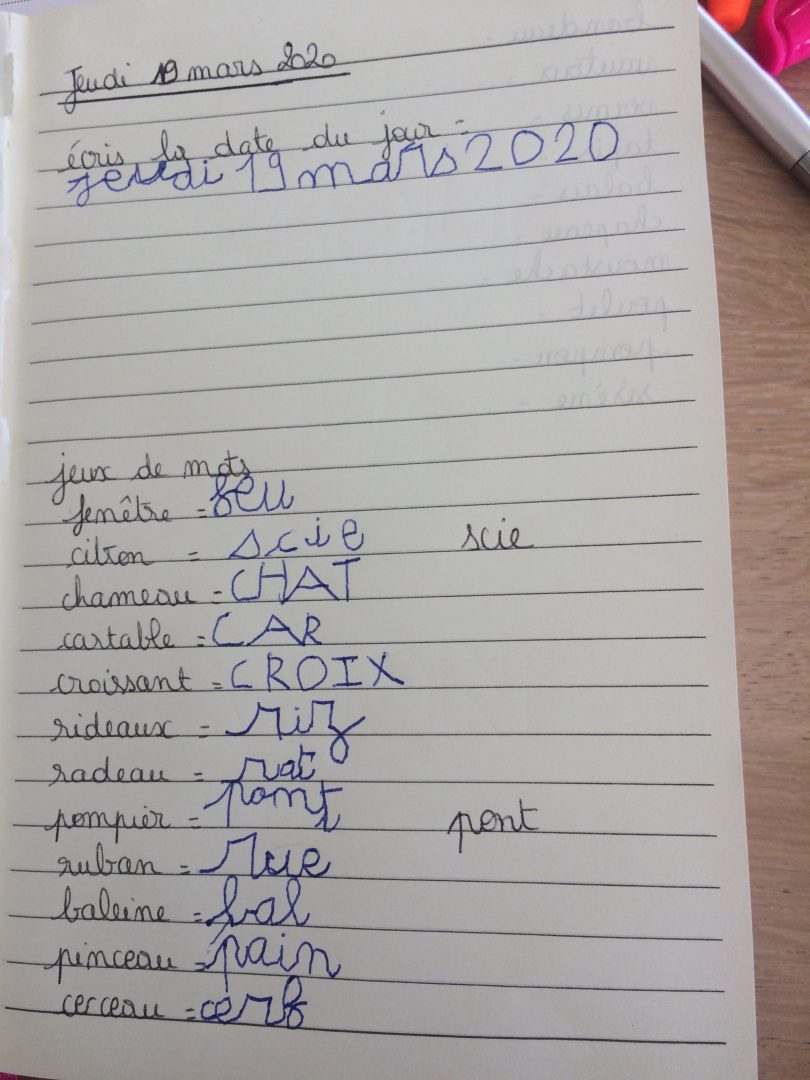 Jeudi 19 mars 2020
écris la date du jour :
jeudi 19 mars 2020
jeux de mots
fenêtre = feu
citron = scie scie
chameau = CHAT
cartable = CAR
croissant = CROIX
rideaux = riz
radeau = rat
pompier = pont pont
ruban = rue
baleine = bal
pinceau = pain
cerceau = cerf